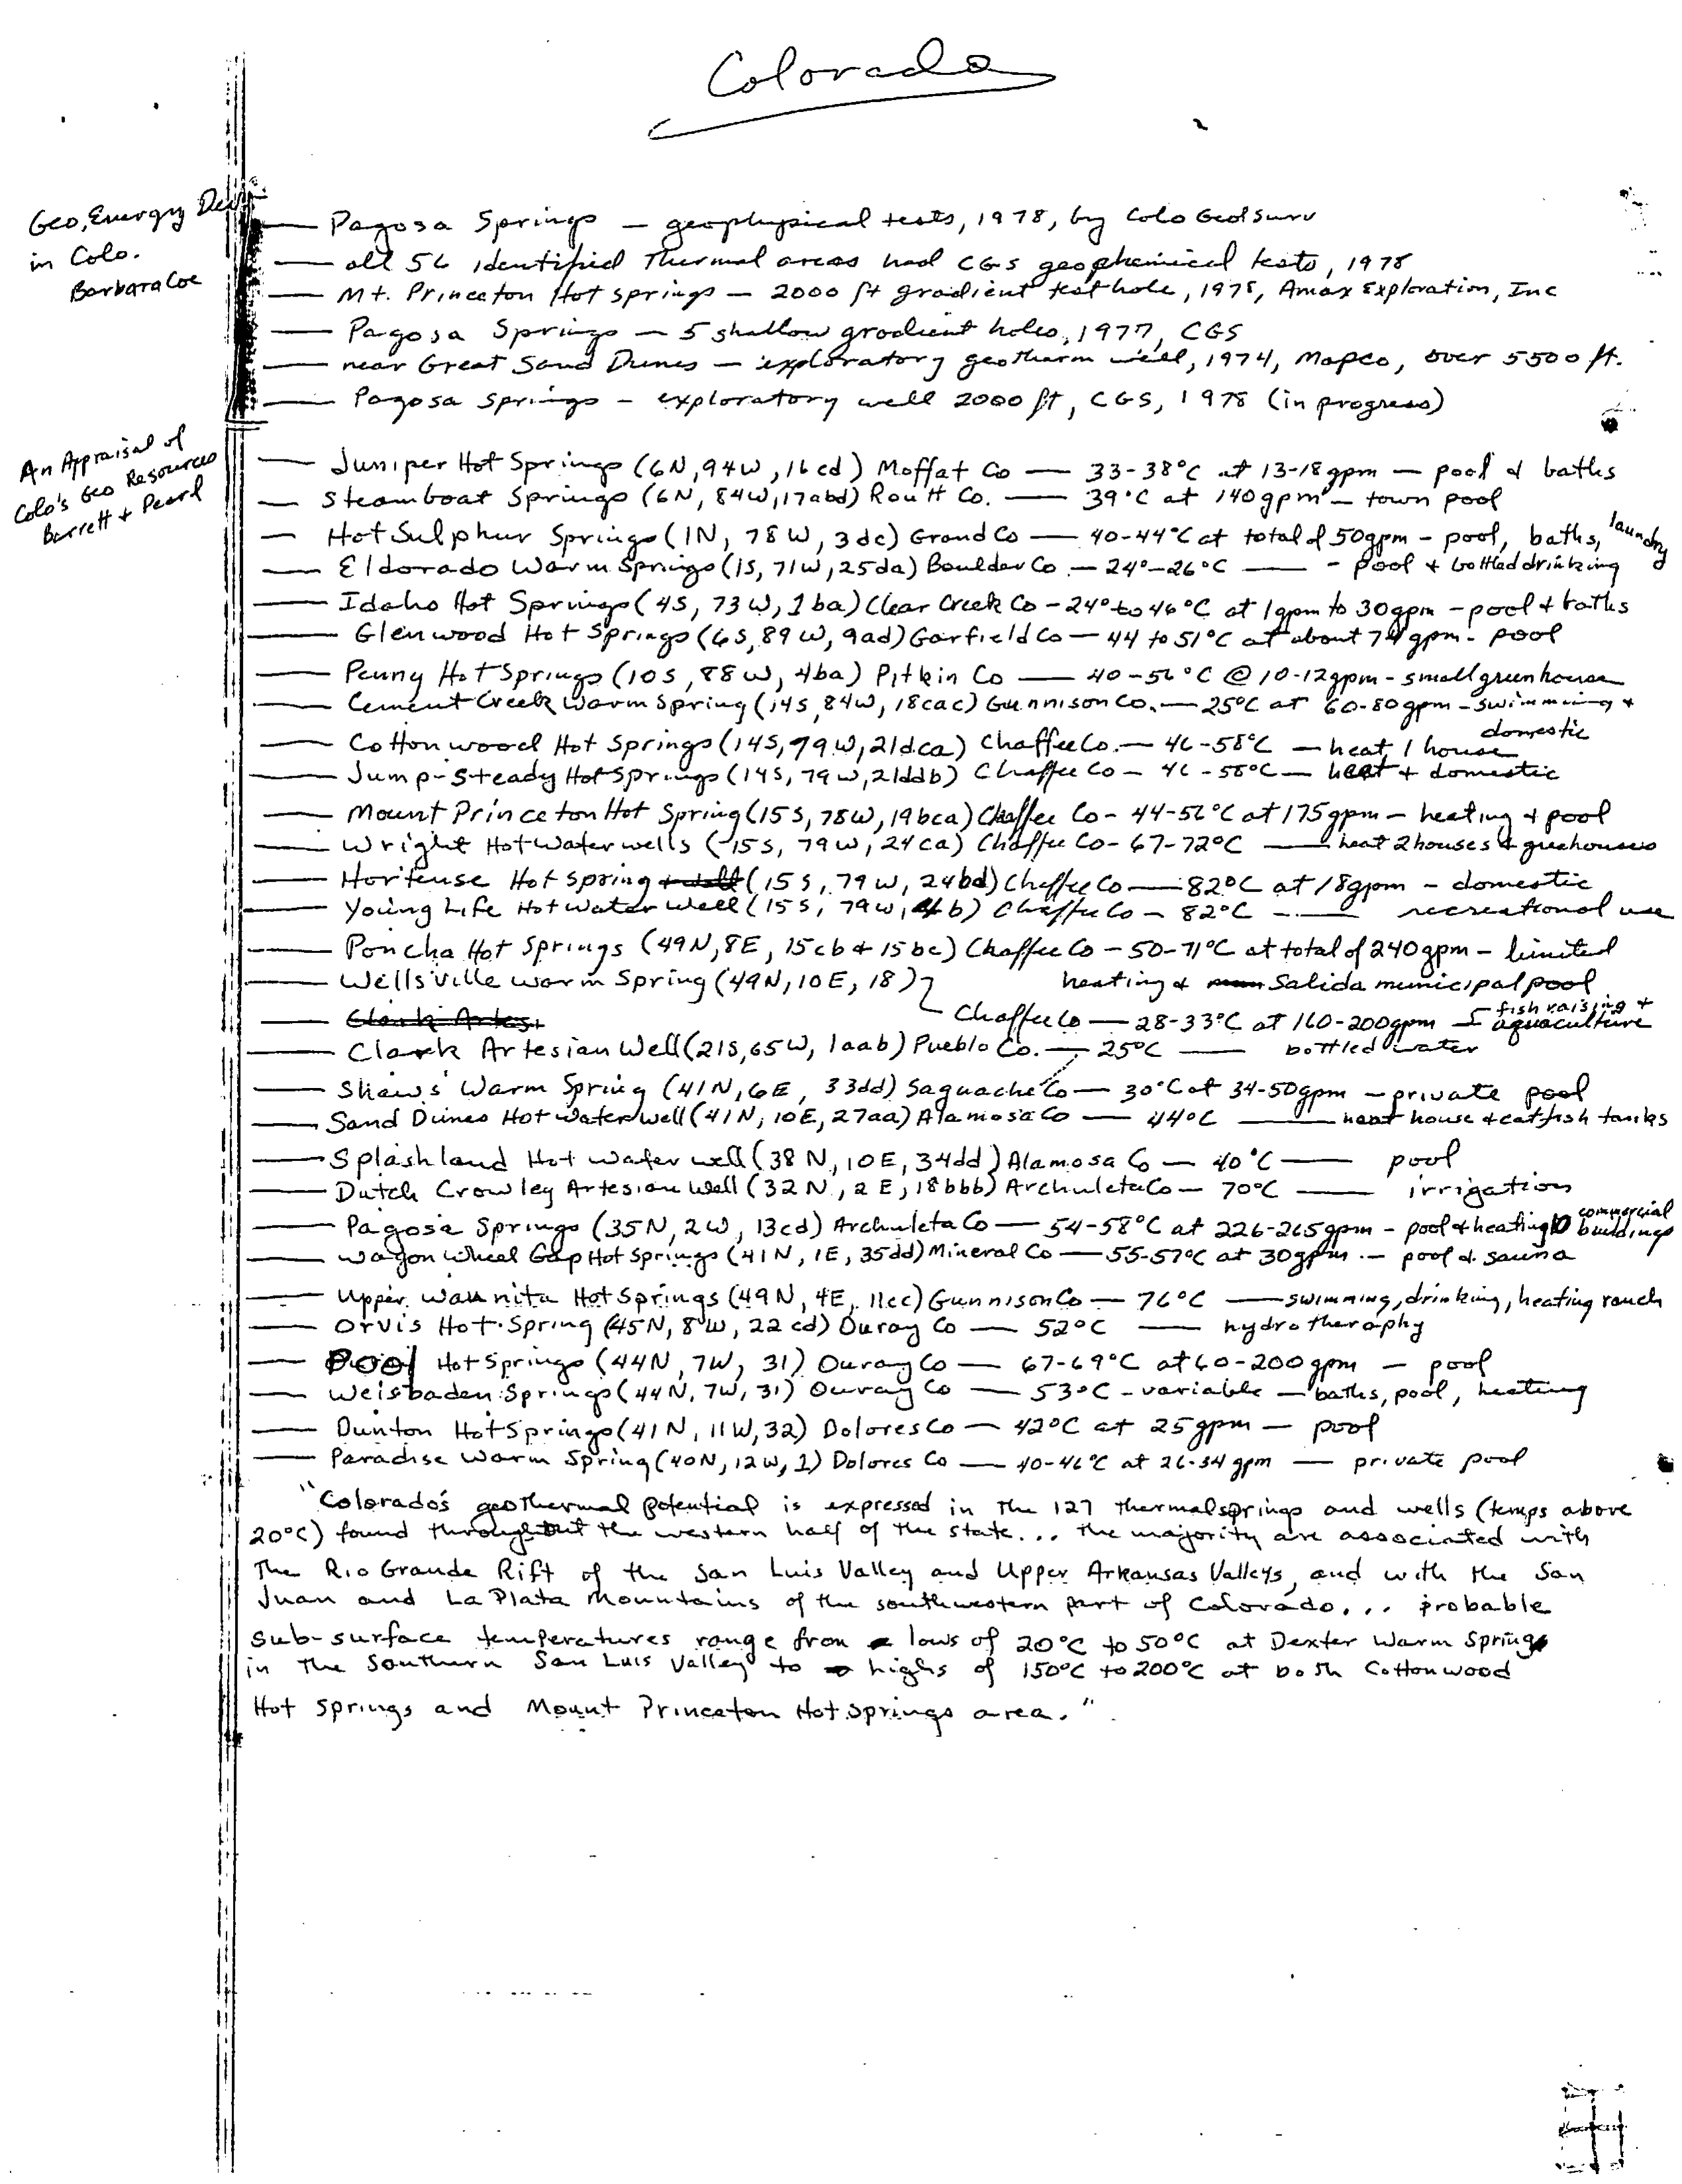 Colorado
Geo, Energy Dev
in Colo.
Barbara Coe
— Pagosa Springs — geophysical tests, 1978, by Colo Geol Surv
— all 56 identified thermal areas had CGS geochemical tests, 1978
— Mt. Princeton Hot springs — 2000 ft gradient test hole, 1975, Amax Exploration, Inc
— Pagosa Springs — 5 shallow gradient holes, 1977, CGS
— near Great Sand Dunes — exploratory geotherm well, 1974, Mapco, over 5500 ft.
— Pagosa Springs — exploratory well 2000 ft, CGS, 1978 (in progress)
An Appraisal of
Colo's Geo Resources
Barrett + Pearl
— Juniper Hot Springs (6N, 94W, 16cd) Moffat Co — 33-38°C at 13-18gpm — pool & baths
— Steamboat Springs (6N, 84W, 17abd) Routt Co. — 39°C at 140gpm — town pool
— Hot Sulphur Springs (1N, 78W, 3dc) Grand Co — 40-44°C at total of 50gpm — pool, baths, laundry
— Eldorado Warm Springs (1S, 71W, 25da) Boulder Co. — 24°-26°C — - pool + bottled drinking
— Idaho Hot Springs (4S, 73W, 1ba) Clear Creek Co — 24° to 46°C at 1gpm to 30gpm — pool + baths
— Glenwood Hot Springs (6S, 89W, 9ad) Garfield Co — 44 to 51°C at about 74gpm - pool
— Penny Hot Springs (10S, 88W, 4ba) Pitkin Co — 40-56°C @ 10-12gpm - small greenhouse
— Cement Creek Warm Spring (14S, 84W, 18cac) Gunnison Co. — 25°C at 60-80gpm - swimming +
domestic
— Cottonwood Hot Springs (14S, 79W, 21dca) Chaffee Co. — 46-58°C — heat 1 house
— Jump-Steady Hot Springs (14S, 79W, 21ddb) Chaffee Co — 46-58°C — heat + domestic
— Mount Princeton Hot Spring (15S, 78W, 19bca) Chaffee Co - 44-56°C at 175gpm — heating + pool
— Wright Hot Water wells (15S, 79W, 24ca) Chaffee Co - 67-72°C — heat 2 houses & greenhouses
— Hortense Hot Spring + well (15S, 79W, 24bd) Chaffee Co — 82°C at 18gpm — domestic
— Young Life Hot Water Well (15S, 79W, b) Chaffee Co — 82°C — recreational use
— Poncha Hot Springs (49N, 8E, 15cb + 15bc) Chaffee Co — 50-71°C at total of 240gpm — limited
heating & Salida municipal pool
— Wellsville Warm Spring (49N, 10E, 18)
Chaffee Co — 28-33°C at 160-200gpm — fish raising + aquaculture
— Clark Artes.
— Clark Artesian Well (21S, 65W, 1aab) Pueblo Co. — 25°C — bottled water
— Shaws' Warm Spring (41N, 6E, 33dd) Saguache Co — 30°C at 34-50gpm — private pool
— Sand Dunes Hot Water well (41N, 10E, 27aa) Alamosa Co — 44°C — heat house & catfish tanks
— Splashland Hot Water well (38N, 10E, 34dd) Alamosa Co — 40°C — pool
— Dutch Crowley Artesian Well (32N, 2E, 18bbb) Archuleta Co — 70°C — irrigation
— Pagosa Springs (35N, 2W, 13cd) Archuleta Co — 54-58°C at 226-265gpm - pool & heating 10 commercial buildings
— Wagon Wheel Gap Hot Springs (41N, 1E, 35dd) Mineral Co — 55-57°C at 30gpm — pool & sauna
— Upper Waunita Hot Springs (49N, 4E, 11cc) Gunnison Co — 76°C — swimming, drinking, heating ranch
— Orvis Hot Spring (45N, 8W, 22cd) Ouray Co — 52°C — hydrotheraphy
— Pool Hot Springs (44N, 7W, 31) Ouray Co — 67-69°C at 60-200gpm — pool
— Weisbaden Springs (44N, 7W, 31) Ouray Co — 53°C - variable — baths, pool, heating
— Dunton Hot Springs (41N, 11W, 32) Dolores Co — 42°C at 25gpm — pool
— Paradise Warm Spring (40N, 12W, 1) Dolores Co — 40-46°C at 26-34gpm — private pool
"Colorado's geothermal potential is expressed in the 127 thermal springs and wells (temps above
20°C) found throughout the western half of the state... the majority are associated with
the Rio Grande Rift of the San Luis Valley and Upper Arkansas Valleys, and with the San
Juan and La Plata Mountains of the southwestern part of Colorado... probable
sub-surface temperatures range from lows of 20°C to 50°C at Dexter Warm Spring
in the Southern San Luis Valley to highs of 150°C to 200°C at both Cottonwood
Hot Springs and Mount Princeton Hot Springs area."